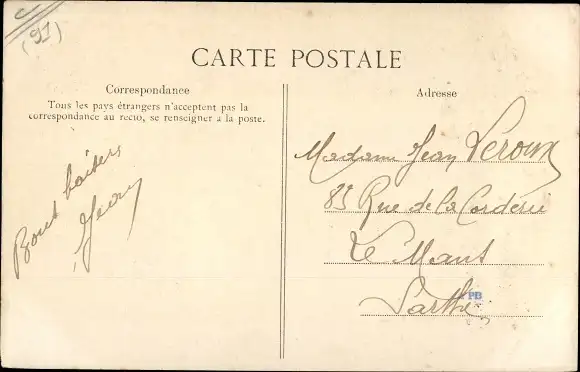 C
(91)
CARTE POSTALE
Correspondance
Tous les pays étrangers n'acceptent pas la
correspondance au recto, se renseigner à la poste.
Bons baisers
Jean
Adresse
Madame Jean Leroux
Rue de la Corderie
Le Mans
Sarthe
PB